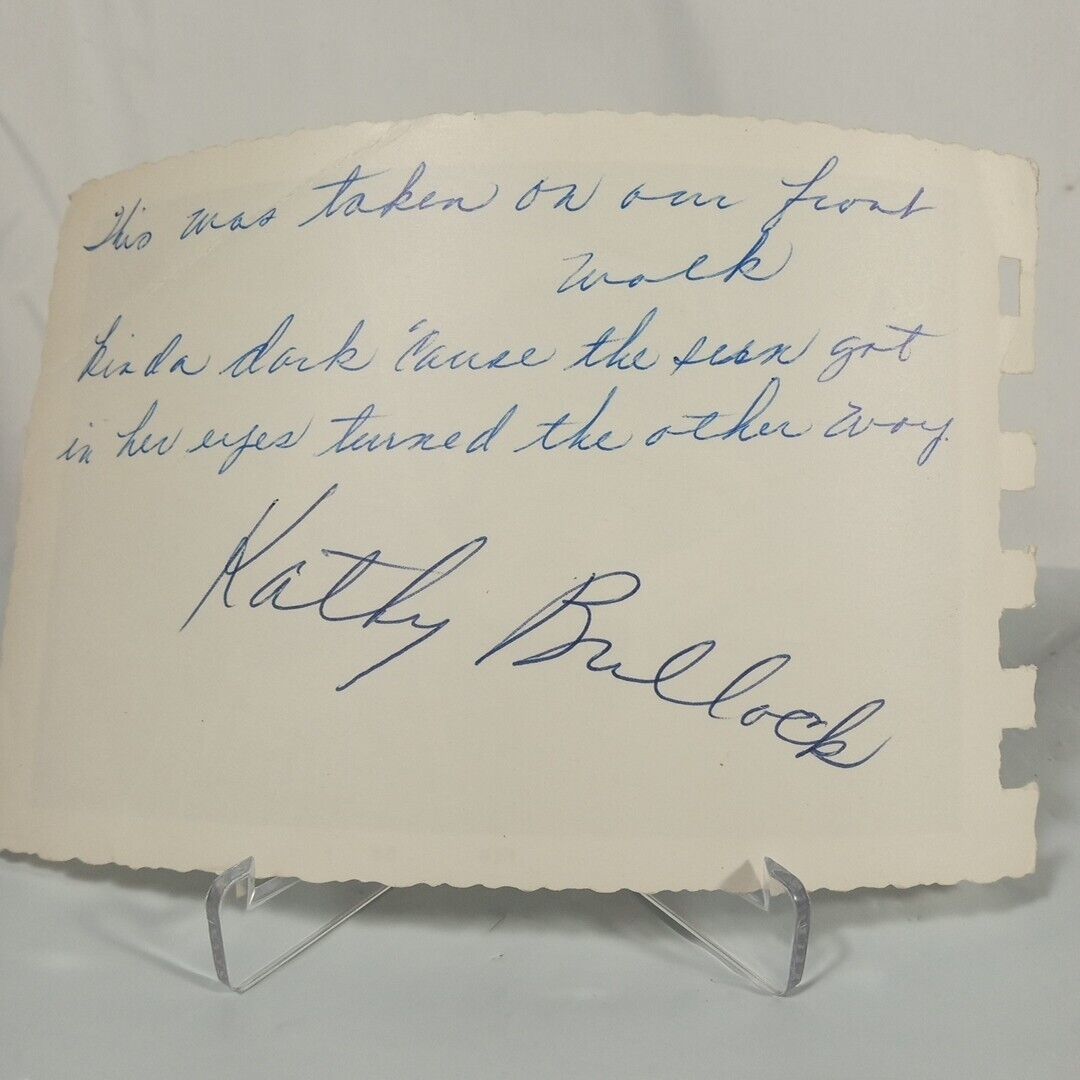 This was taken on our front
walk
kinda dark 'cause the sun got
in her eyes turned the other way.
Kathy Bullock